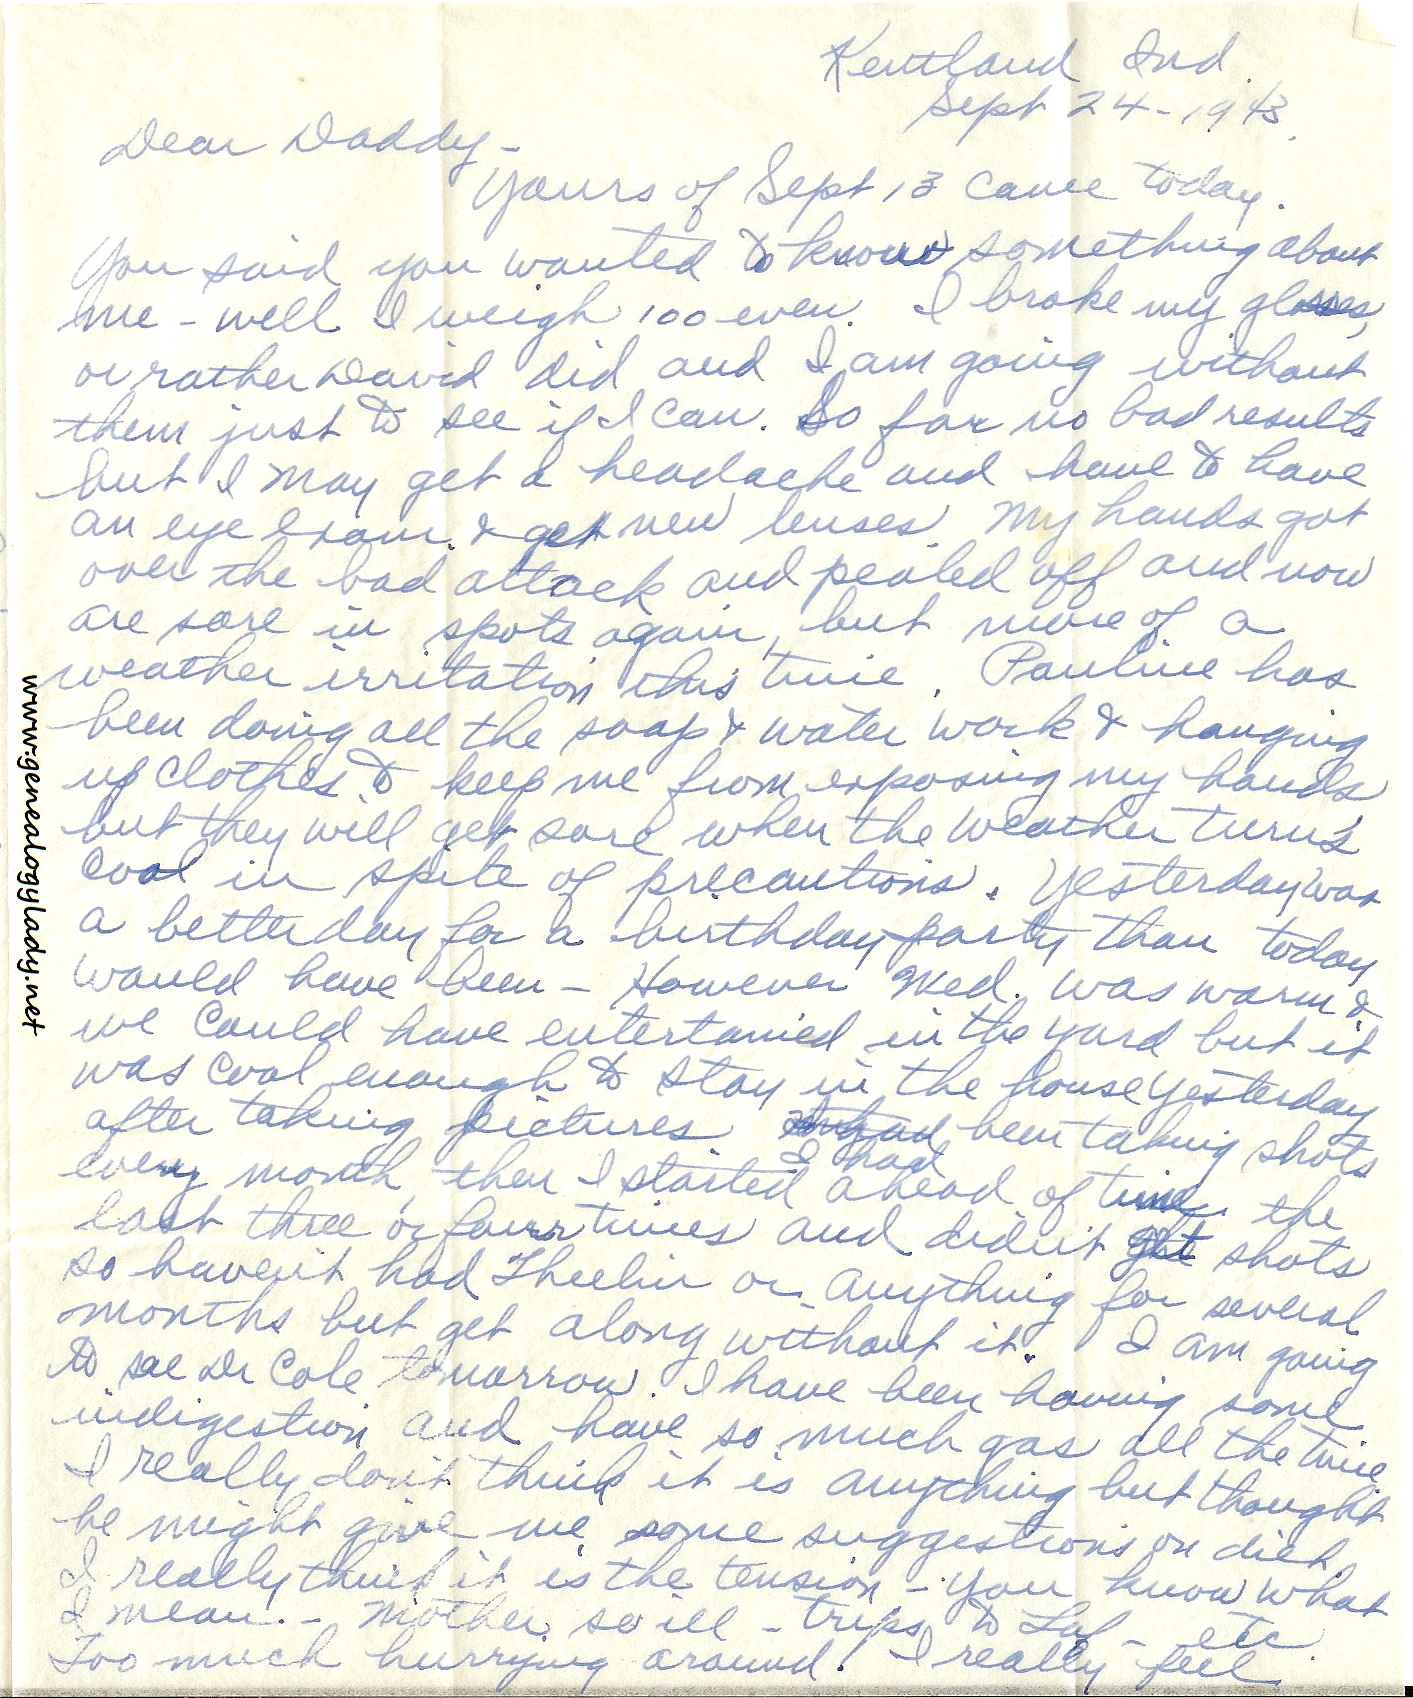 Kentland Ind.
Sept 24-1943.
Dear Daddy -
Yours of Sept 13 came today.
You said you wanted to know something about
me - well I weigh 100 even. I broke my glasses,
or rather David did and I am going without
them just to see if I can. So far no bad results
but I may get a headache and have to have
an eye exam. & get new lenses. My hands got
over the bad attack and pealed off and now
are sore in spots again, but more of a
weather irritation this time. Pauline has
been doing all the soap & water work & hanging
up clothes to keep me from exposing my hands
but they will get sore when the weather turns
cool in spite of precautions. Yesterday was
a better day for a birthday party than today
would have been - However Wed. was warm &
we could have entertained in the yard but it
was cool enough to stay in the house yesterday
after taking pictures been taking shots
I had
every month, then I started ahead of time the
last three or four times and didn't get shots
so haven't had Theelin or anything for several
months but get along without it. I am going
to see Dr Cole tomorrow. I have been having some
indigestion and have so much gas all the time
I really don't think it is anything but thought
he might give me some suggestions on diet.
I really think it is the tension - you know what
I mean. - Mother so ill - trips to Laf - etc.
Too much hurrying around! I really feel
www.genealogylady.net